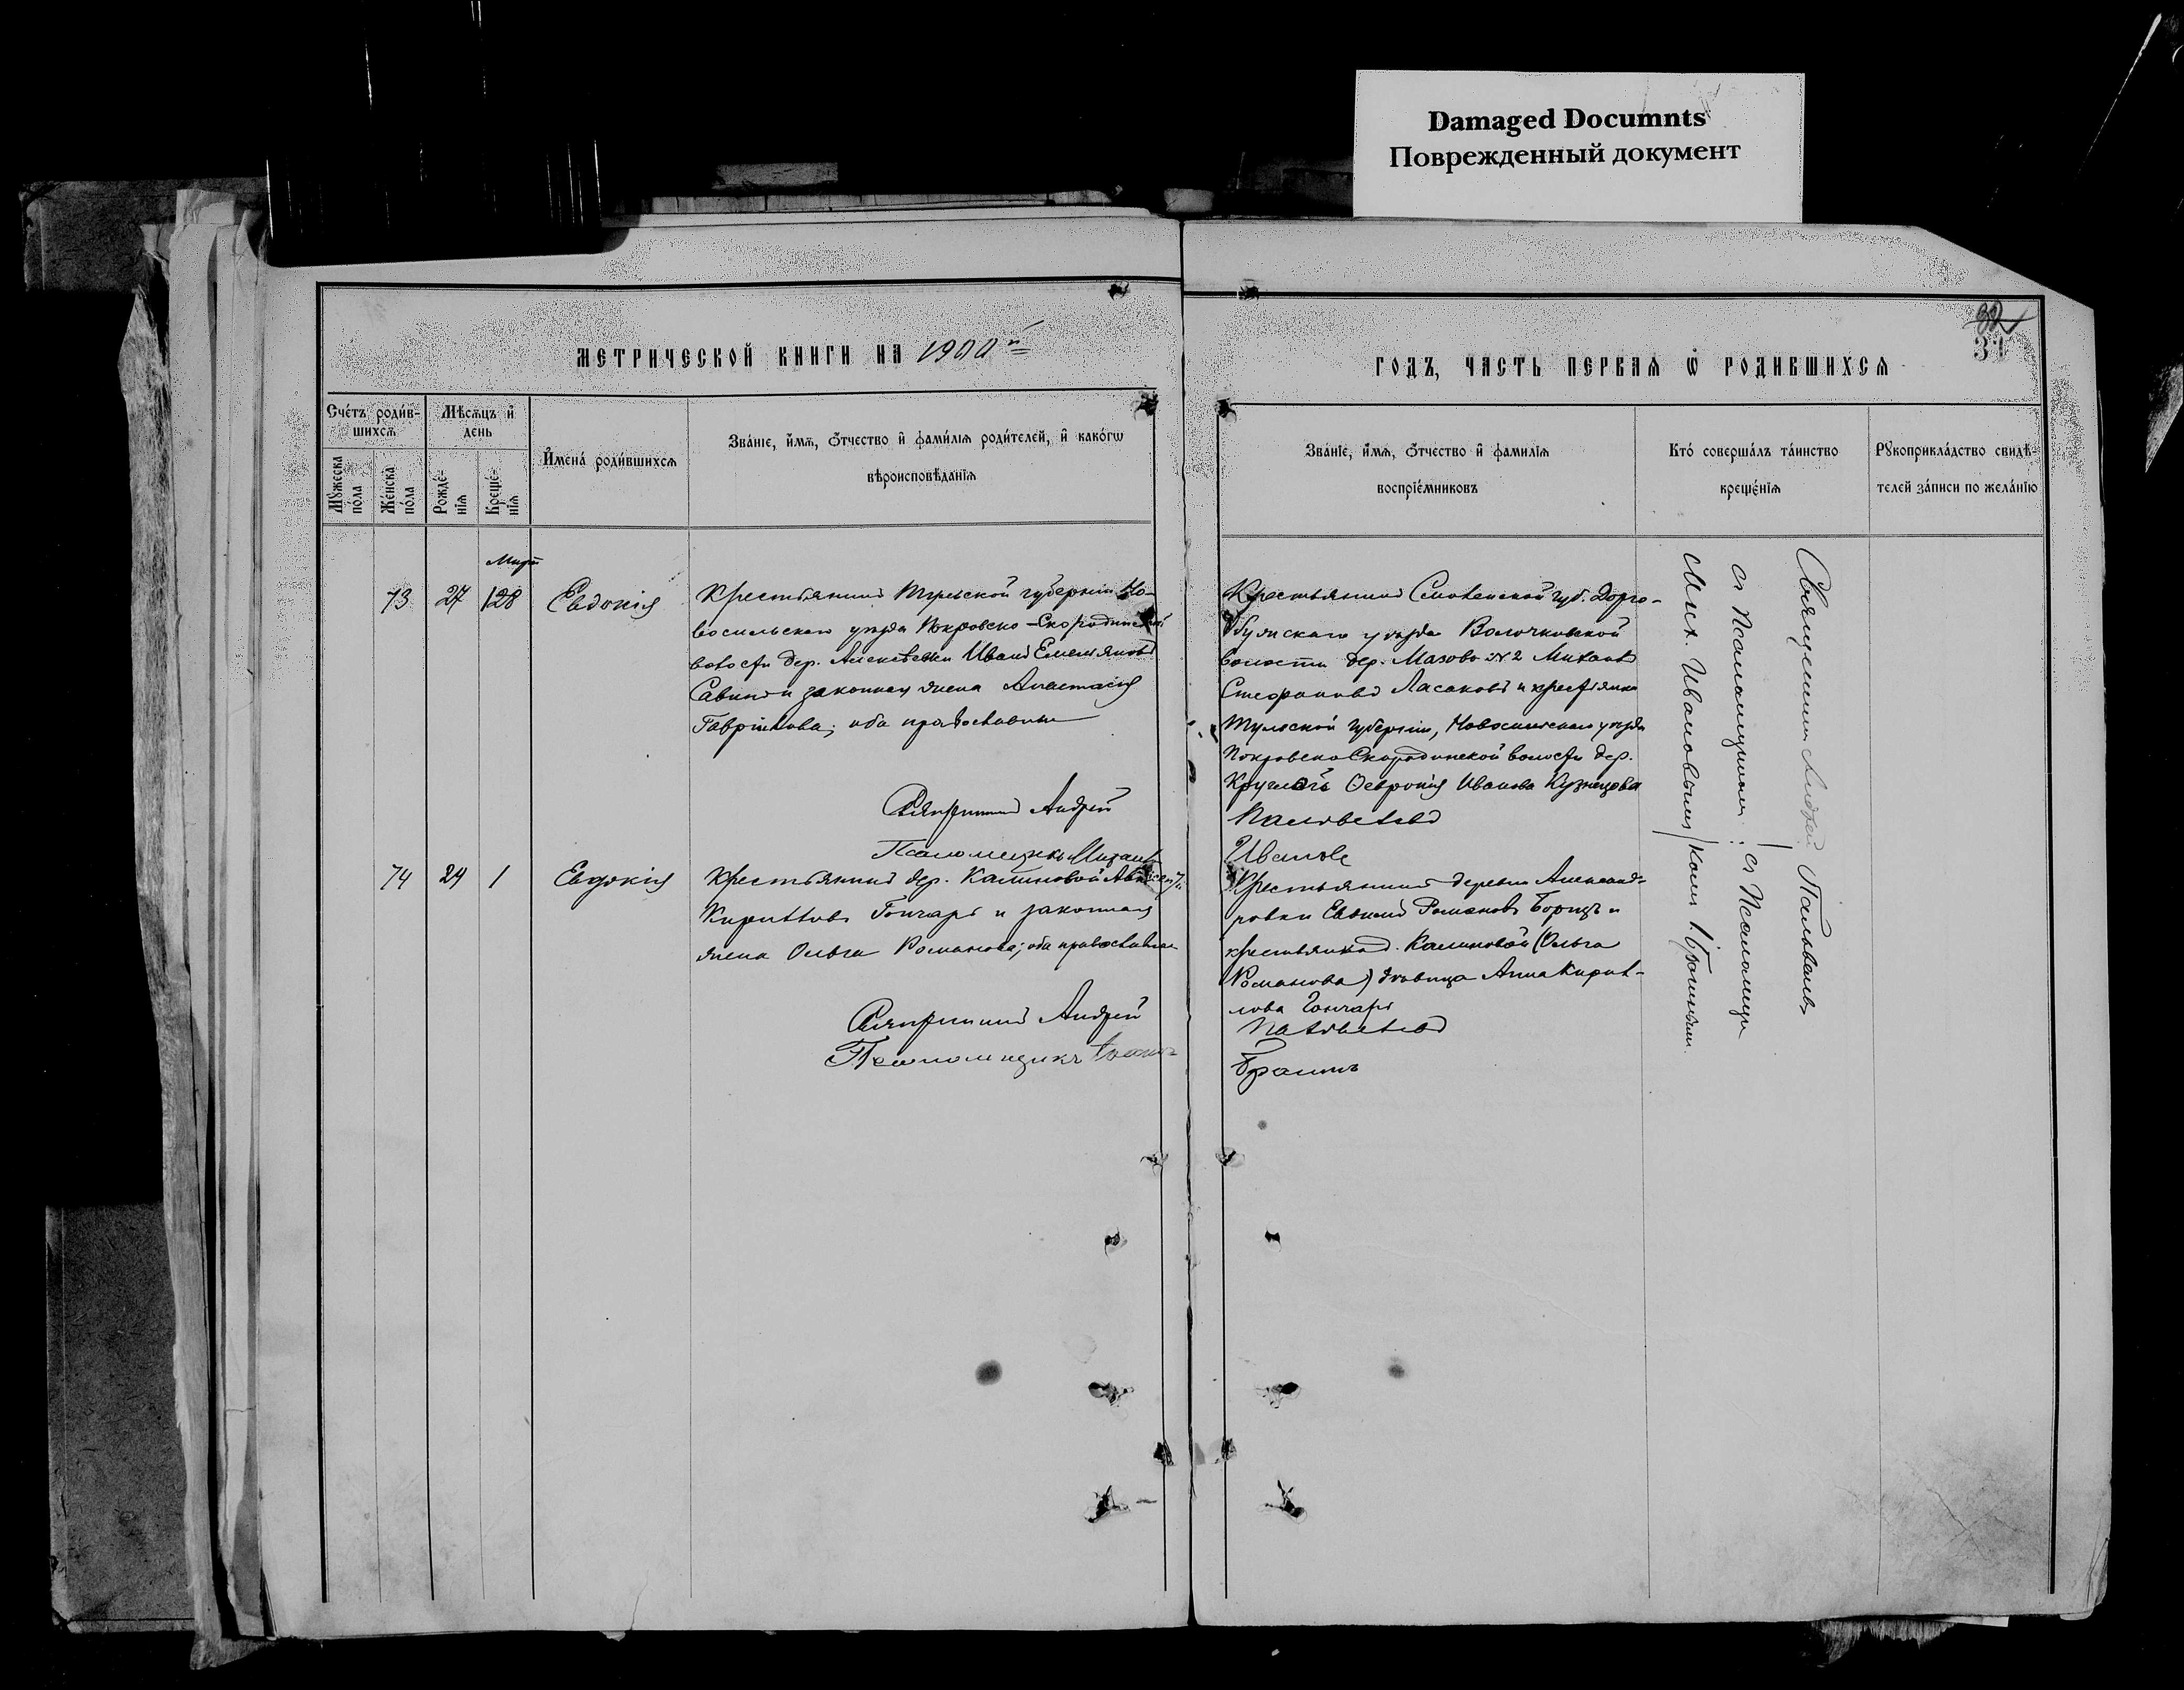 Damaged Documnts
Поврежденный документ
МЕТРИЧЕСКОЙ КНИГИ НА 1900й
ГОДЪ, ЧАСТЬ ПЕРВАЯ Ѡ РОДИВШИХСЯ
32
31
Счётъ роди́в-
шихсѧ
Мꙋжеска по́ла
Же́нска по́ла
Мѣсѧцъ и҆ день
Рожде́-
нїѧ
Креще́-
нїѧ
И҆мена́ роди́вшихсѧ
Зва́нїе, и҆́мѧ, ѻ҆́тчество и҆ фами́лїѧ роди́телей, и҆ како́гѡ
вѣроисповѣ́данїѧ
Зва́нїе, и҆́мѧ, ѻ҆́тчество и҆ фамилїѧ
воспрїе́мниковъ
Кто́ соверша́лъ та́инство
креще́нїѧ
Рꙋкоприкла́дство свидѣ́-
телей за́писи по жела́нїю
73
27
28
Евдокія
Крестьянинъ Тульской губерніи Но-
восильскаго уѣзда Покровско-Скородинской
волости дер. Алексѣевки Иванъ Емельяновъ
Савинъ и законная жена Анастасія
Гавріилова; оба православные
Священникъ Андрей
Псаломщикъ Михаилъ
Крестьянинъ Смоленской губ. Дорого-
бужскаго уѣзда Волочковской
волости дер. Мазово №2 Михаилъ
Стефановъ Ласаковъ и крестьянка
Тульской губерніи, Новосильскаго уѣзда
Покровско Скородинской волости дер.
Круглой Ѳевронія Иванова Кузнецова
Пальвелевъ
Ивановъ
74
24
1
Евдокія
Крестьянинъ дер. Калиновой
Кирилловъ Гончаръ и законная
жена Ольга Романова; оба православные
Священникъ Андрей
Псаломщикъ
Крестьянинъ деревни Александ-
ровки Евѳимій Романовъ Борщъ и
крестьянка д. Калиновой (Ольга
Романова) дѣвица Анна Кирил-
лова Гончаръ
Священникъ Андрей
съ Псаломщикомъ
Мих. Ивановымъ